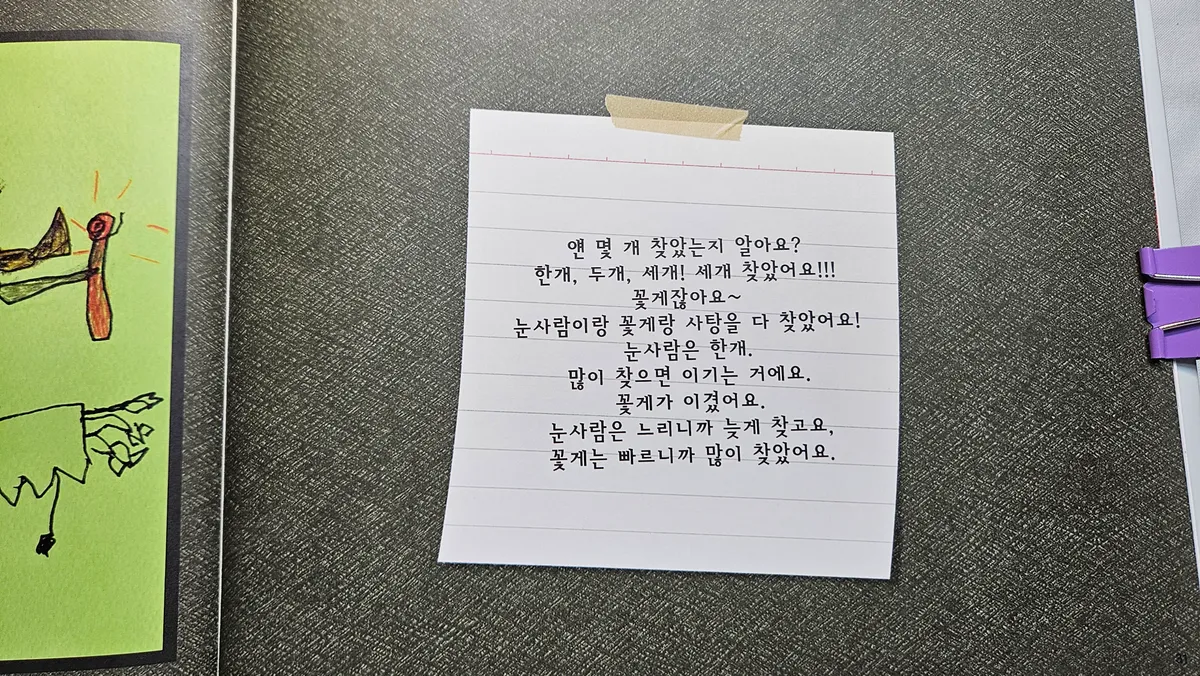 얜 몇 개 찾았는지 알아요?
한개, 두개, 세개! 세개 찾았어요!!!
꽃게잖아요~
눈사람이랑 꽃게랑 사탕을 다 찾았어요!
눈사람은 한개.
많이 찾으면 이기는 거에요.
꽃게가 이겼어요.
눈사람은 느리니까 늦게 찾고요,
꽃게는 빠르니까 많이 찾았어요.
31